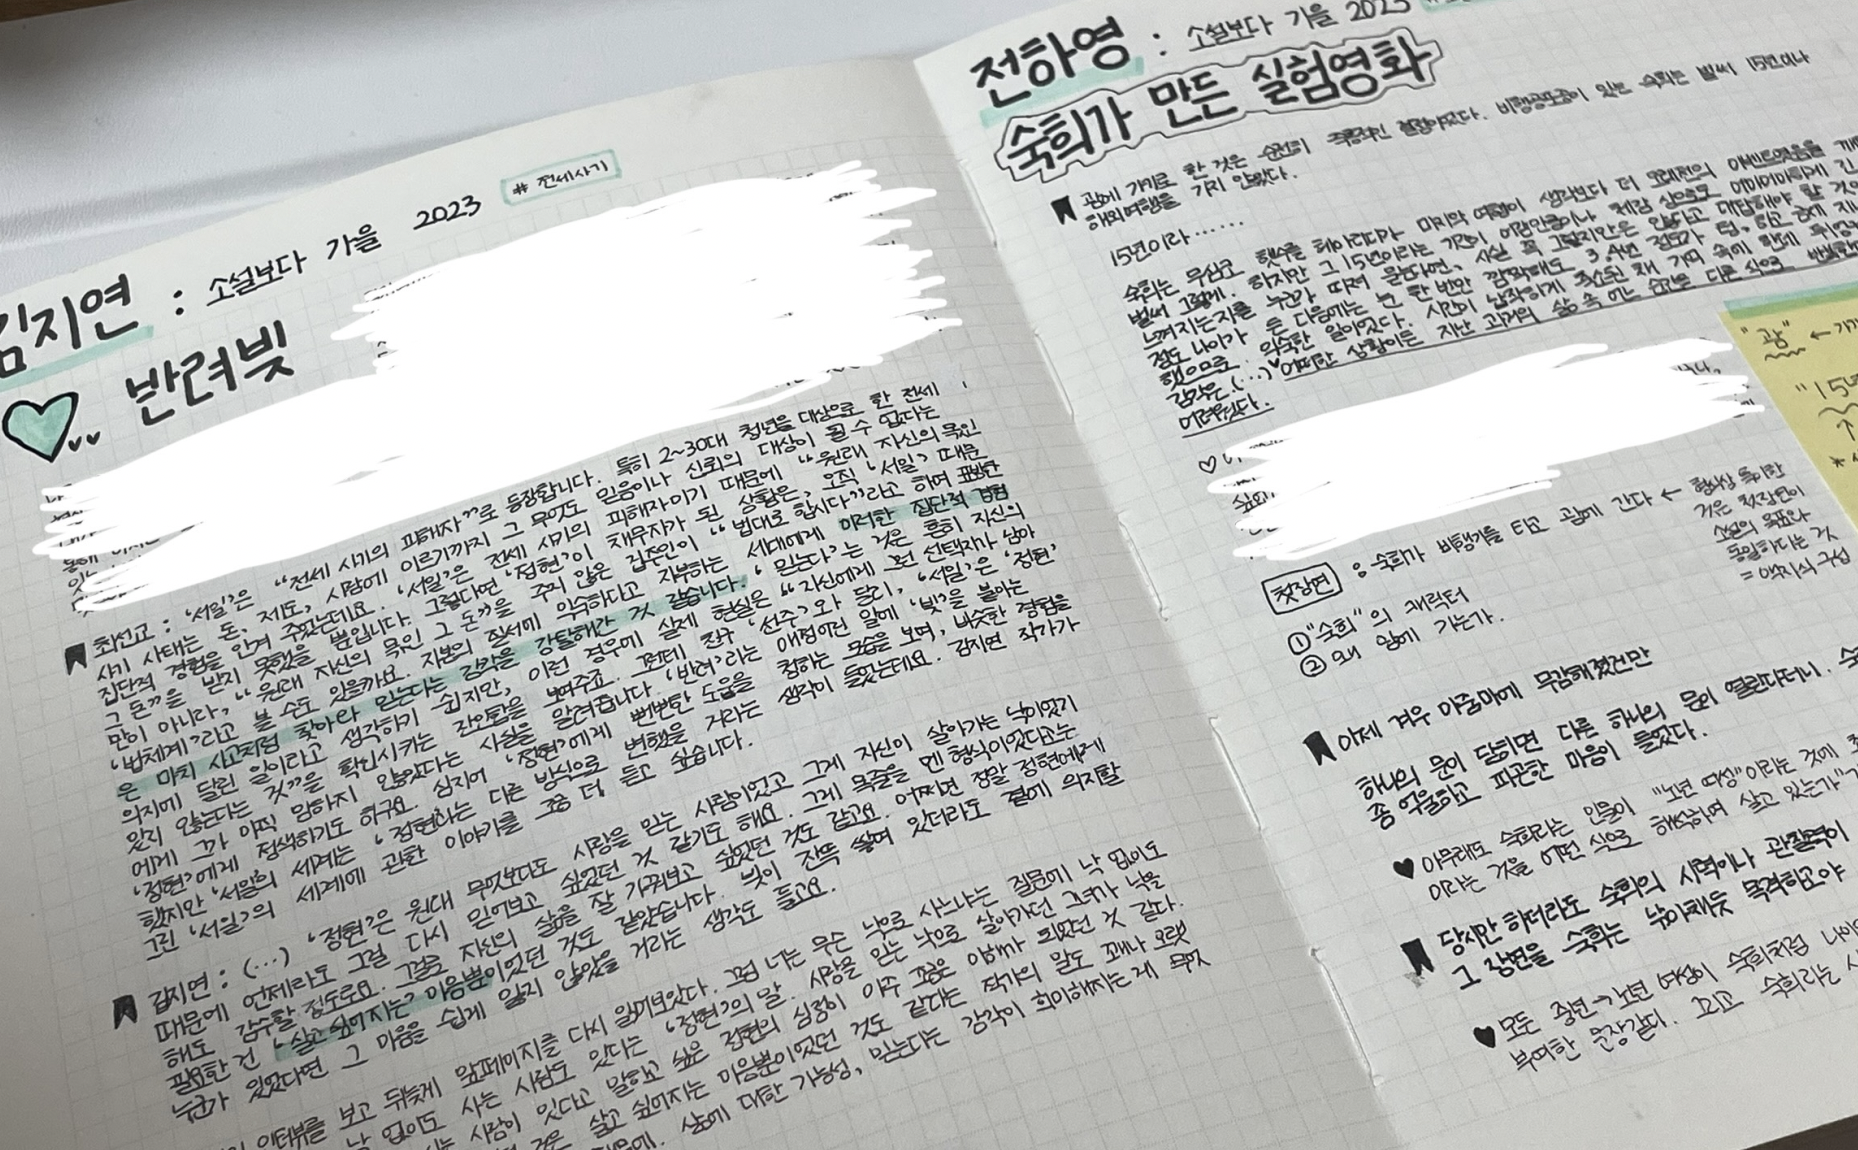 김지연 : 소설보다 가을 2023 # 전세사기
반려빚
최선교 : '서일'은 "전세 사기의 피해자"로 등장합니다. 특히 2~30대 청년을 대상으로 한 전세
사기 사태는 돈, 제도, 사람에 이르기까지 그 무엇도 믿음이나 신뢰의 대상이 될 수 없다는
집단적 경험을 안겨 주었는데요. '서일'은 전세 사기의 피해자이기 때문에 "원래 자신의 몫인
그 돈"을 받지 못했을 뿐입니다. 그렇다면 '정현'이 채무자가 된 상황은, 오직 '서일' 때문
만이 아니라, "원래 자신의 몫인 그 돈"을 주지 않은 집주인이 "법대로 합시다"라고 하며 표방한
'법체계'라고 볼 수도 있을까요. 자본의 질서에 익숙하다고 자부하는 세대에게 이러한 집단적 경험
은 마치 사고처럼 찾아와 믿는다는 감각을 강탈해간 것 같습니다. '믿는다'는 것은 흔히 자신의
의지에 달린 일이라고 생각하기 쉽지만, 이런 경우에 실제 현실은 "자신에게 그런 선택지가 남아
있지 않는다는 것"을 확인시키는 잔인함을 보여주죠. 그런데 친구 '선주'와 달리, '서일'은 '정현'
에게 그가 아직 망하지 않았다는 사실을 알려줍니다. '반려'라는 애정어린 말에 '빚'을 붙이는
'정현'에게 정색하기도 하구요. 심지어 '정현'에게 뻔뻔한 도움을 청하는 모습을 보며, 비슷한 경험을
했지만 '서일'의 세계는 '정현'과는 다른 방식으로 변했을 거라는 생각이 들었는데요. 김지연 작가가
그린 '서일'의 세계에 관한 이야기를 조금 더 듣고 싶습니다.
김지연 : (…) '정현'은 원래 무엇보다도 사랑을 믿는 사람이었고 그게 자신이 살아가는 낙이었기
때문에 언제라도 그걸 다시 믿어보고 싶었던 것 같기도 해요. 그게 목줄을 맨 형식이었다고는
해도 감수할 정도로요. 그걸로 자신의 삶을 잘 가꿔보고 싶었던 것도 같고요. 어쩌면 정말 정현에게
필요한 건 '살고 싶어지는' 마음뿐이었던 것도 같았습니다. 빚이 잔뜩 쌓여 있더라도 곁에 의지할
누군가 있었다면 그 마음을 쉽게 잃지 않았을 거라는 생각도 들고요.
인터뷰를 보고 뒤늦게 앞페이지를 다시 읽어보았다. 그럼 너는 무슨 낙으로 사느냐는 질문에 낙 없이도
낙 없이도 사는 사람도 있다는 '정현'의 말. 사랑을 믿는 낙으로 살아가던 그녀가 낙을
사람이 있다고 말하고 싶은 정현의 심정이 아주 조금은 이해가 되었던 것 같다.
것은 살고 싶어지는 마음뿐이었던 것도 같다는 작가의 말도 꽤나 오랫
삶에 대한 가능성, 믿는다는 감각이 희미해지는 게 무엇
전하영 : 소설보다 가을 2023
숙희가 만든 실험영화
괌에 가기로 한 것은 순전히 즉흥적인 결정이었다. 비행공포증이 있는 숙희는 벌써 15년이나
해외여행을 가지 않았다.
15년이라……
숙희는 무심코 햇수를 헤아리다가 마지막 여행이 생각보다 더 오래전의 이벤트였음을 깨
벌써 그렇게. 하지만 그 15년이라는 기간이 어떤만큼이나 체감 상으로도 어마어마하게 긴
느껴지는지를 누군가 따져 묻는다면, 사실 꼭 그렇지만은 않다고 대답해야 할 것
점도 나이가 든 다음에는 눈 한 번만 깜짝해도 3,4년 정도가 텀, 하고 금세 지나
했으므로 익숙한 일이었다. 시간이 납작하게 축소된 채 기억 속에 한데 뒤엉켜
감각은 (…) 어떠한 상황이든 지난 과거의 삶 속 어느 순간을 다른 식으로 반복한
어려웠다.
"괌" ←
"15년
첫장면 : 숙희가 비행기를 타고 괌에 간다 ← 형식상 특이한
것은 첫장면이
소설의 목표와
동일하다는 것
= 액자식 구성
① "숙희"의 캐릭터
② 왜 괌에 가는가.
이제 겨우 아줌마에 무감해졌지만
하나의 문이 닫히면 다른 하나의 문이 열린다더니. 숙
종 억울하고 피곤한 마음이 들었다.
아무래도 숙희라는 인물이 "노년 여성"이라는 것에
이라는 것을 어떤 식으로 해석하며 살고 있는가"
당시만 하더라도 숙희의 시력이나 관찰력이
그 장면을 숙희는 낚아채듯 목격하고야
모든 중년→노년 여성이 숙희처럼 나이
부여한 문장같다. 그리고 숙희라는